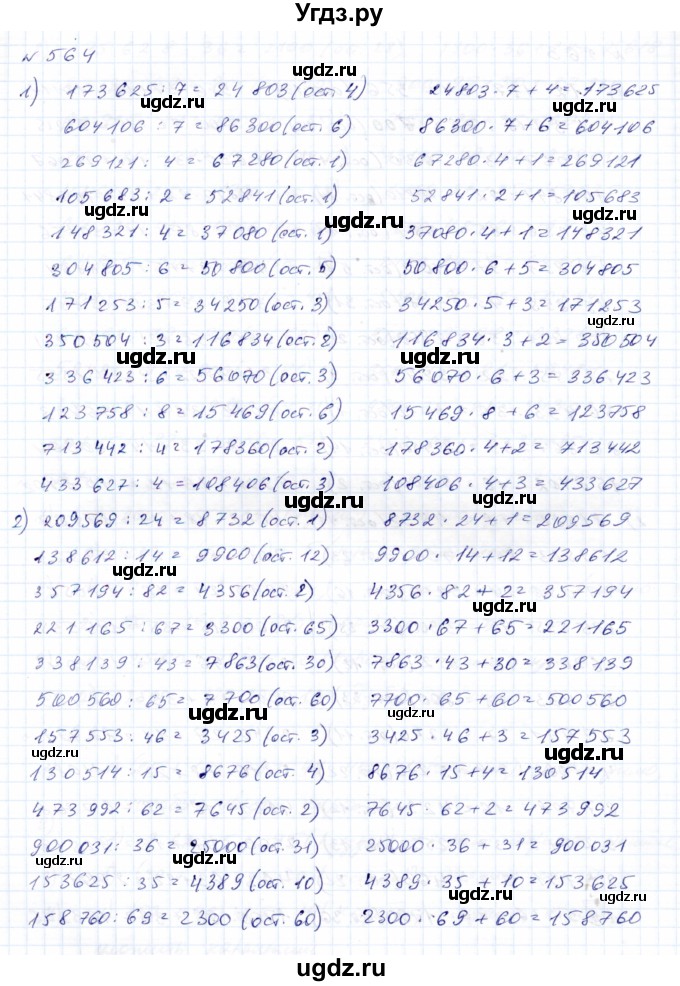 Угдз.ру
№ 564
1) 173 625 : 7 = 24 803 (ост. 4) 24803 · 7 + 4 = 173625
604106 : 7 = 86300 (ост. 6) 86300 · 7 + 6 = 604106
269121 : 4 = 67280 (ост. 1) 67280 · 4 + 1 = 269121
105 683 : 2 = 52841 (ост. 1) 52841 · 2 + 1 = 105683
148 321 : 4 = 37080 (ост. 1) 37080 · 4 + 1 = 148321
304805 : 6 = 50 800 (ост. 5) 50800 · 6 + 5 = 304805
171253 : 5 = 34250 (ост. 3) 34250 · 5 + 3 = 171253
350 504 : 3 = 116 834 (ост. 2) 116834 · 3 + 2 = 350504
336 423 : 6 = 56070 (ост. 3) 56070 · 6 + 3 = 336423
123758 : 8 = 15469 (ост. 6) 15469 · 8 + 6 = 123758
713 442 : 4 = 178360 (ост. 2) 178360 · 4 + 2 = 713442
433 627 : 4 = 108406 (ост. 3) 108406 · 4 + 3 = 433627
2) 209569 : 24 = 8732 (ост. 1) 8732 · 24 + 1 = 209569
138612 : 14 = 9900 (ост. 12) 9900 · 14 + 12 = 138612
357194 : 82 = 4356 (ост. 2) 4356 · 82 + 2 = 357194
221165 : 67 = 3300 (ост. 65) 3300 · 67 + 65 = 221165
338139 : 43 = 7863 (ост. 30) 7863 · 43 + 30 = 338139
500560 : 65 = 7700 (ост. 60) 7700 · 65 + 60 = 500560
157553 : 46 = 3425 (ост. 3) 3425 · 46 + 3 = 157553
130514 : 15 = 8676 (ост. 4) 8676 · 15 + 4 = 130514
473 992 : 62 = 7645 (ост. 2) 7645 · 62 + 2 = 473992
900031 : 36 = 25000 (ост. 31) 25000 · 36 + 31 = 900031
153625 : 35 = 4389 (ост. 10) 4389 · 35 + 10 = 153625
158 760 : 69 = 2300 (ост. 60) 2300 · 69 + 60 = 158760
ugdz.ru